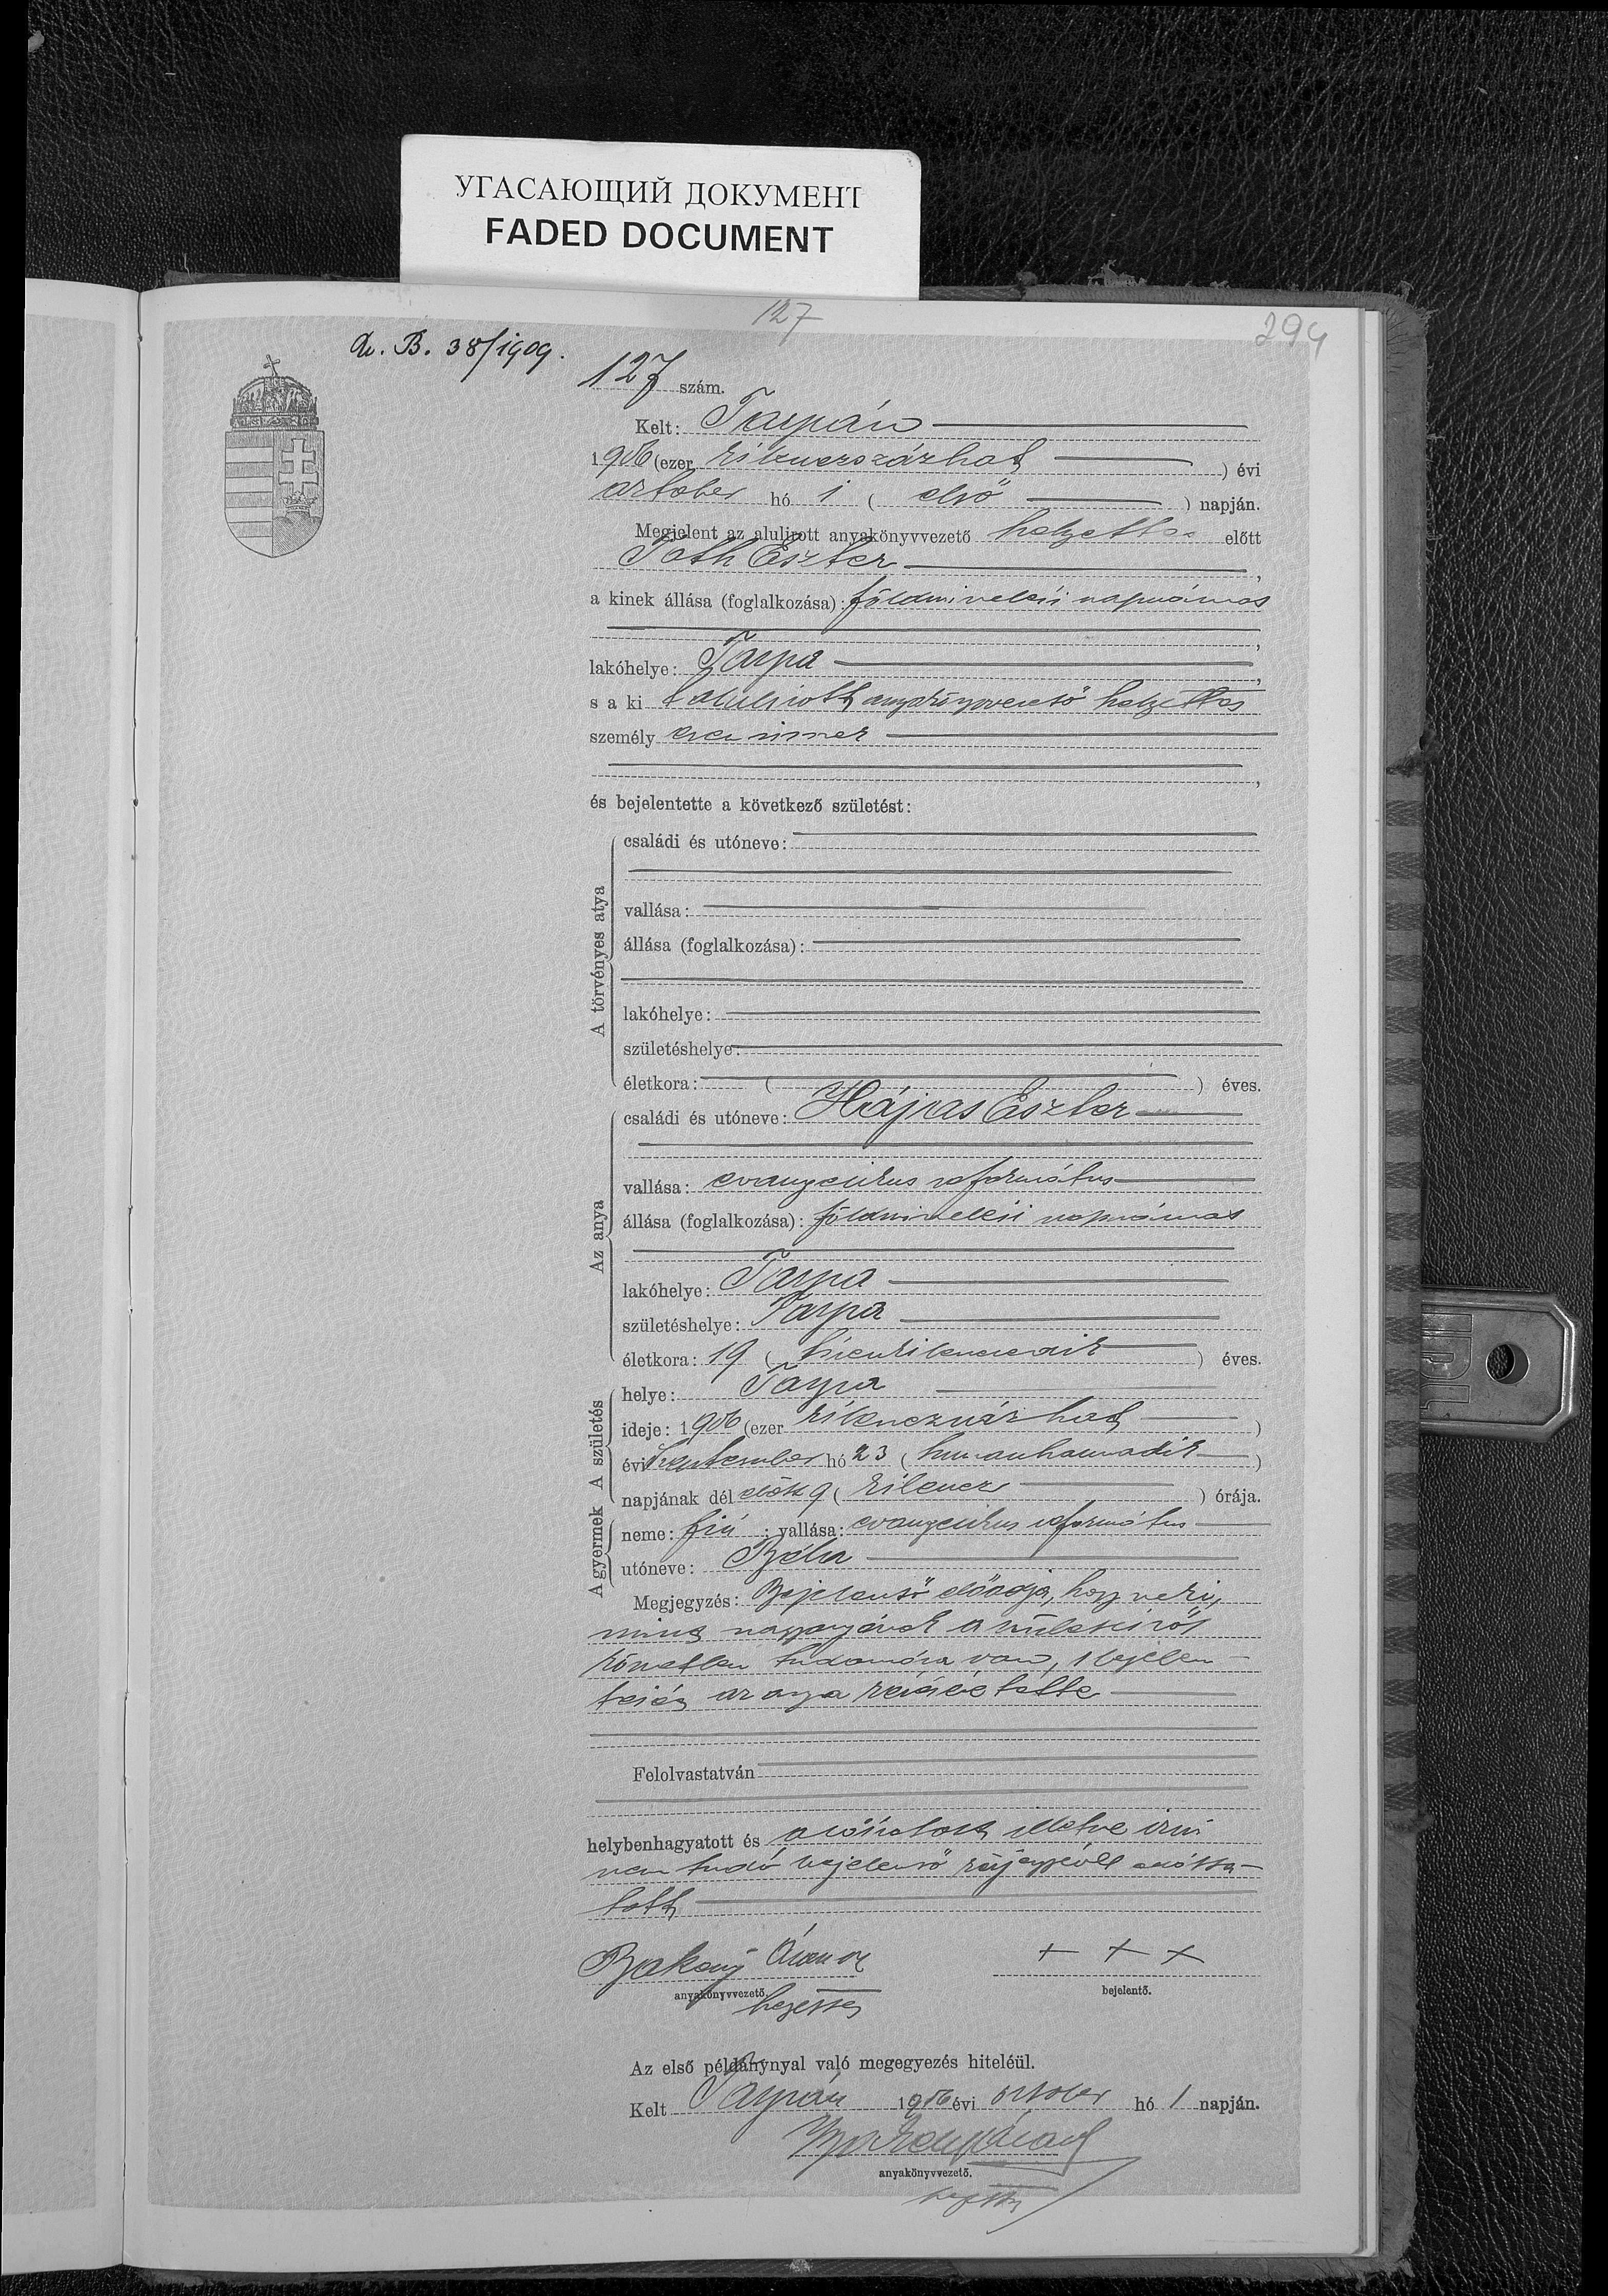 УГАСАЮЩИЙ ДОКУМЕНТ
FADED DOCUMENT
127
294
B. 38/1909.
127 szám.
Kelt: Tarpán
1906 (ezer kilenczszázhat ) évi
október hó 1 ( első ) napján.
Megjelent az alulirott anyakönyvvezető helyettes előtt
Toth Eszter,
a kinek állása (foglalkozása): földmivelési napszámos
,
lakóhelye: Tarpa,
s a ki alulirott anyakönyvvezető helyettes
személy esen ismer
,
és bejelentette a következő születést:
A törvényes atya
családi és utóneve:
vallása:
állása (foglalkozása):
lakóhelye:
születéshelye:
életkora: ( ) éves.
Az anya
családi és utóneve: Hájas Eszter
vallása: evangelikus református
állása (foglalkozása): földmivelési napszámos
lakóhelye: Tarpa
születéshelye: Tarpa
életkora: 19 ( tizenkilenczedik ) éves.
A születés
helye: Tarpa
ideje: 1906 (ezer kilenczszázhat )
évi szeptember hó 23 ( huszonharmadik )
napjának dél előtt 9 ( kilencz ) órája.
A gyermek
neme: fiú ; vallása: evangelikus református
utóneve: Béla
Megjegyzés: Bejelentő előadja, hogy neki,
mint nagyanyának a születésről
közvetlen tudomása van, s bejelen-
tését az anya tette
Felolvastatván
helybenhagyatott és aláiratott, illetve irni
nem tudó bejelentő kézjegyével ellátta-
tott
Bakay helyettes
+ + +
anyakönyvvezető.
bejelentő.
Az első példánynyal való megegyezés hiteléül.
Kelt Tarpán 1906 évi október hó 1 napján.
anyakönyvvezető.